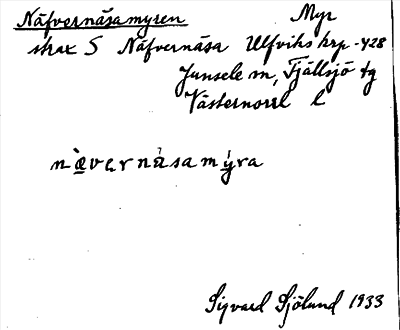 Näfvernåsamyren Myr
strax S Näfvernåsa Ulfviks krp -428
Junsele sn, Fjällsjö tg
Västernorrl l
nævernåsamyra
Sigvard Sjölund 1933